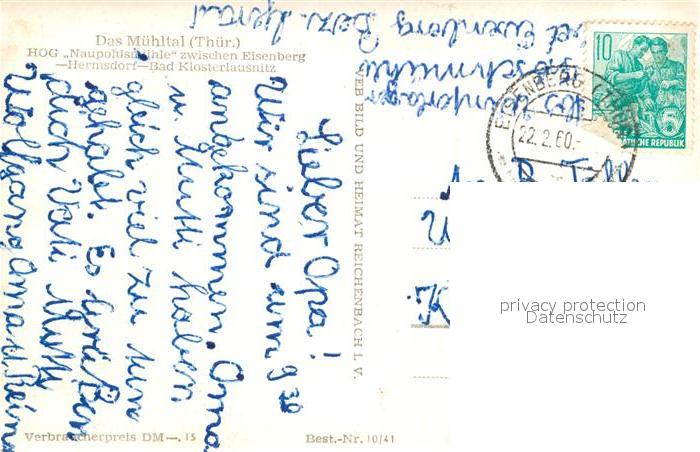 Das Mühltal (Thür.)
HOG „Naupoldsmühle" zwischen Eisenberg
—Hermsdorf—Bad Klosterlausnitz
Lieber Opa!
Wir sind um 9 30
angekommen. Oma
u. Mutti haben
gleich viel zu tun
gehabt. Es grüßen
dich Vati Mutti
Wolfgang Oma u. Heinz
Verbraucherpreis DM —, 15
Best.-Nr. 10/41
VEB BILD UND HEIMAT REICHENBACH I. V.
Eisenberg Bez. Gera
10
5
EISENBERG (THÜR)
22.2.60.
ATISCHE REPUBLIK
privacy protection
Datenschutz